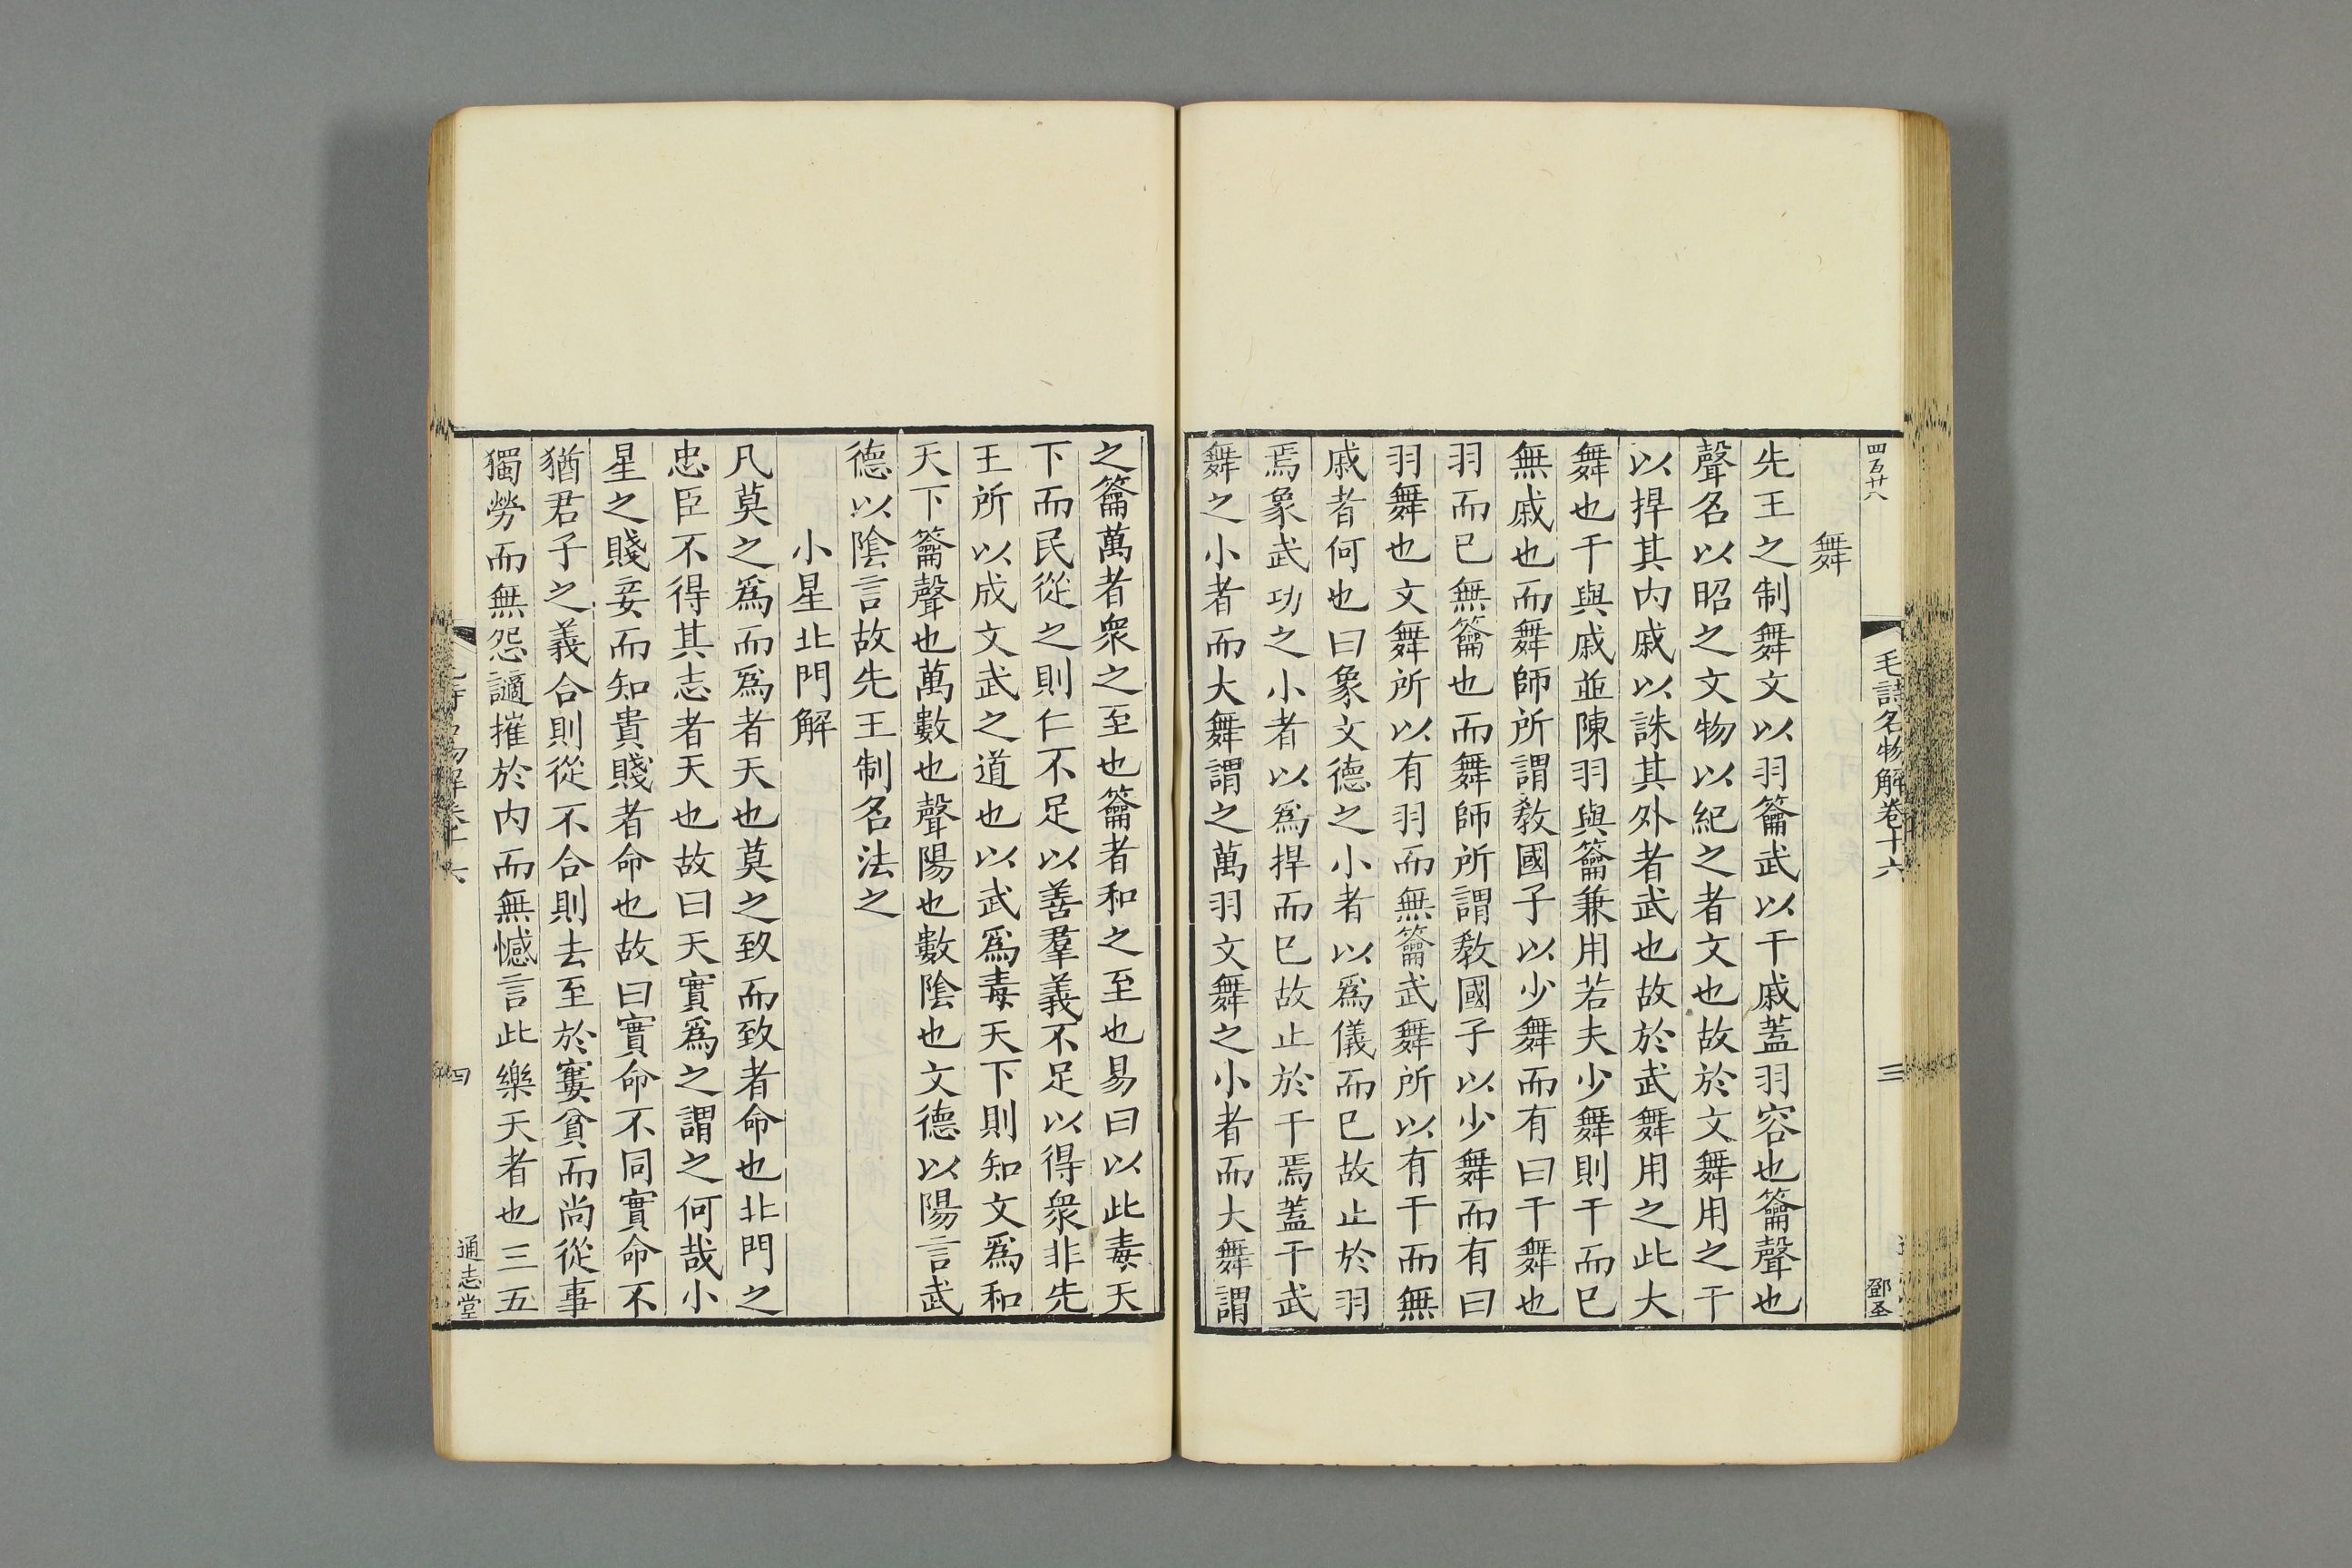 四百廿八
毛詩名物解卷十六
三
鄧圣
舞
先王之制舞文以羽籥武以干戚蓋羽容也籥聲也
聲名以昭之文物以紀之者文也故於文舞用之干
以捍其内戚以誅其外者武也故於武舞用之此大
舞也干與戚並陳羽與籥兼用若夫少舞則干而已
無戚也而舞師所謂敎國子以少舞而有曰干舞也
羽而已無籥也而舞師所謂敎國子以少舞而有曰
羽舞也文舞所以有羽而無籥武舞所以有干而無
戚者何也曰象文德之小者以爲儀而已故止於羽
焉象武功之小者以爲捍而已故止於干焉蓋干武
舞之小者而大舞謂之萬羽文舞之小者而大舞謂
之籥萬者衆之至也籥者和之至也易曰以此毒天
下而民從之則仁不足以善羣義不足以得衆非先
王所以成文武之道也以武爲毒天下則知文爲和
天下籥聲也萬數也聲陽也數陰也文德以陽言武
德以陰言故先王制名法之
小星北門解
凡莫之爲而爲者天也莫之致而致者命也北門之
忠臣不得其志者天也故曰天實爲之謂之何哉小
星之賤妾而知貴賤者命也故曰實命不同實命不
猶君子之義合則從不合則去至於窶貧而尚從事
獨勞而無怨讁摧於内而無憾言此樂天者也三五
四
通志堂